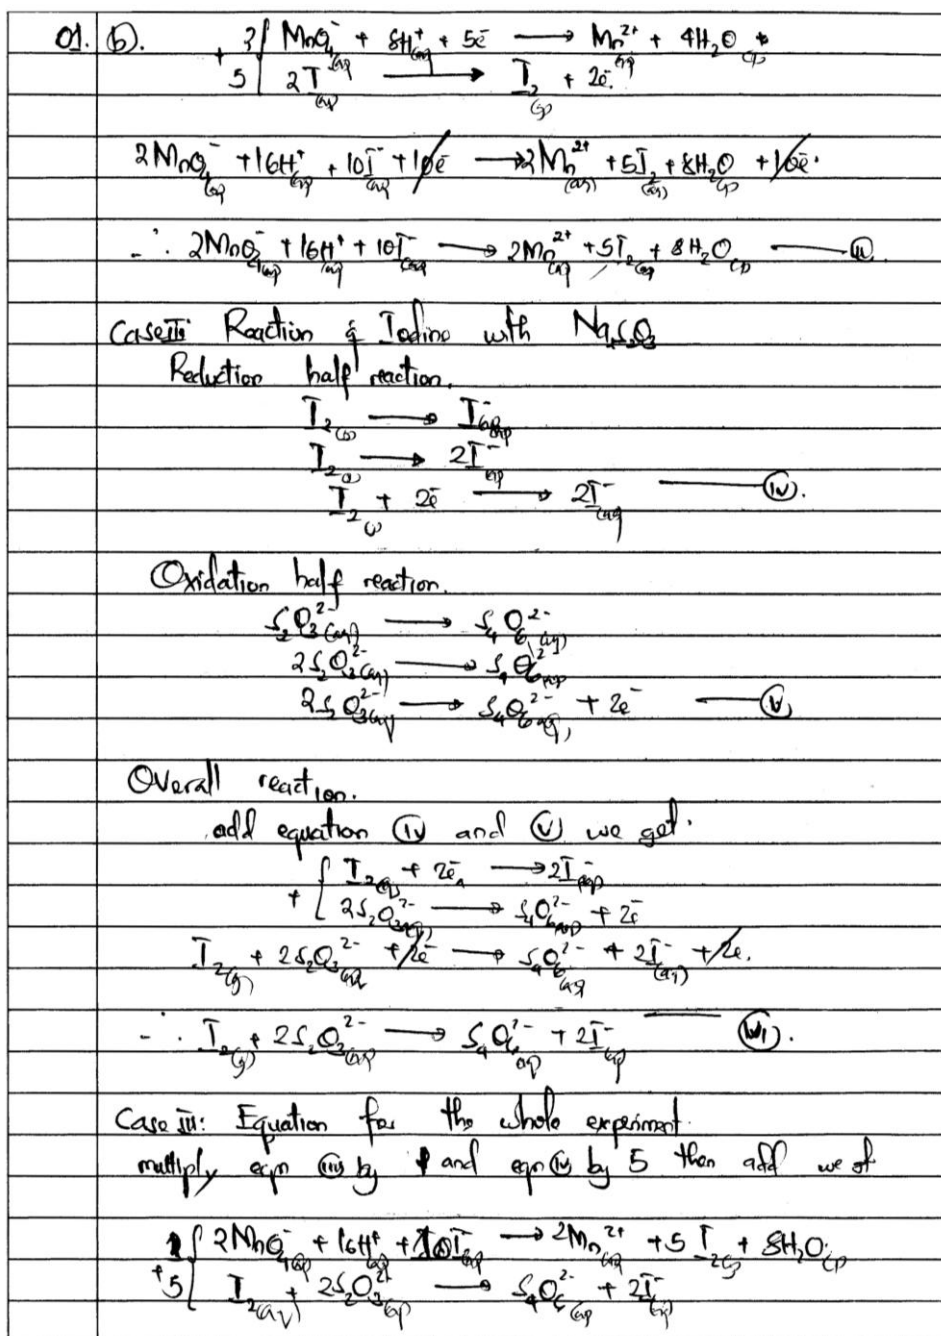 01. (b). + 2 { MnO₄⁻(aq) + 8H⁺(aq) + 5e⁻ → Mn²⁺(aq) + 4H₂O(l)
5 { 2I⁻(aq) → I₂(s) + 2e⁻.
2MnO₄⁻(aq) + 16H⁺(aq) + 10I⁻(aq) + 10e⁻ → 2Mn²⁺(aq) + 5I₂(aq) + 8H₂O(l) + 10e⁻.
∴ 2MnO₄⁻(aq) + 16H⁺(aq) + 10I⁻(aq) → 2Mn²⁺(aq) + 5I₂(aq) + 8H₂O(l) — (iii)
Case II: Reaction of Iodine with Na₂S₂O₃
Reduction half reaction.
I₂(s) → I⁻(aq)
I₂(s) → 2I⁻(aq)
I₂(s) + 2e⁻ → 2I⁻(aq) — (iv).
Oxidation half reaction.
S₂O₃²⁻(aq) → S₄O₆²⁻(aq)
2S₂O₃²⁻(aq) → S₄O₆²⁻(aq)
2S₂O₃²⁻(aq) → S₄O₆²⁻(aq) + 2e⁻ — (v)
Overall reaction.
add equation (iv) and (v) we get.
+ { I₂(s) + 2e⁻ → 2I⁻(aq)
2S₂O₃²⁻(aq) → S₄O₆²⁻(aq) + 2e⁻
I₂(s) + 2S₂O₃²⁻(aq) + 2e⁻ → S₄O₆²⁻(aq) + 2I⁻(aq) + 2e⁻.
∴ I₂(s) + 2S₂O₃²⁻(aq) → S₄O₆²⁻(aq) + 2I⁻(aq) — (vi).
Case III: Equation for the whole experiment.
multiply eqn (iii) by 1 and eqn (iv) by 5 then add we get
1 { 2MnO₄⁻(aq) + 16H⁺(aq) + 10I⁻(aq) → 2Mn²⁺(aq) + 5I₂(s) + 8H₂O(l)
+ 5 { I₂(aq) + 2S₂O₃²⁻(aq) → S₄O₆²⁻(aq) + 2I⁻(aq)